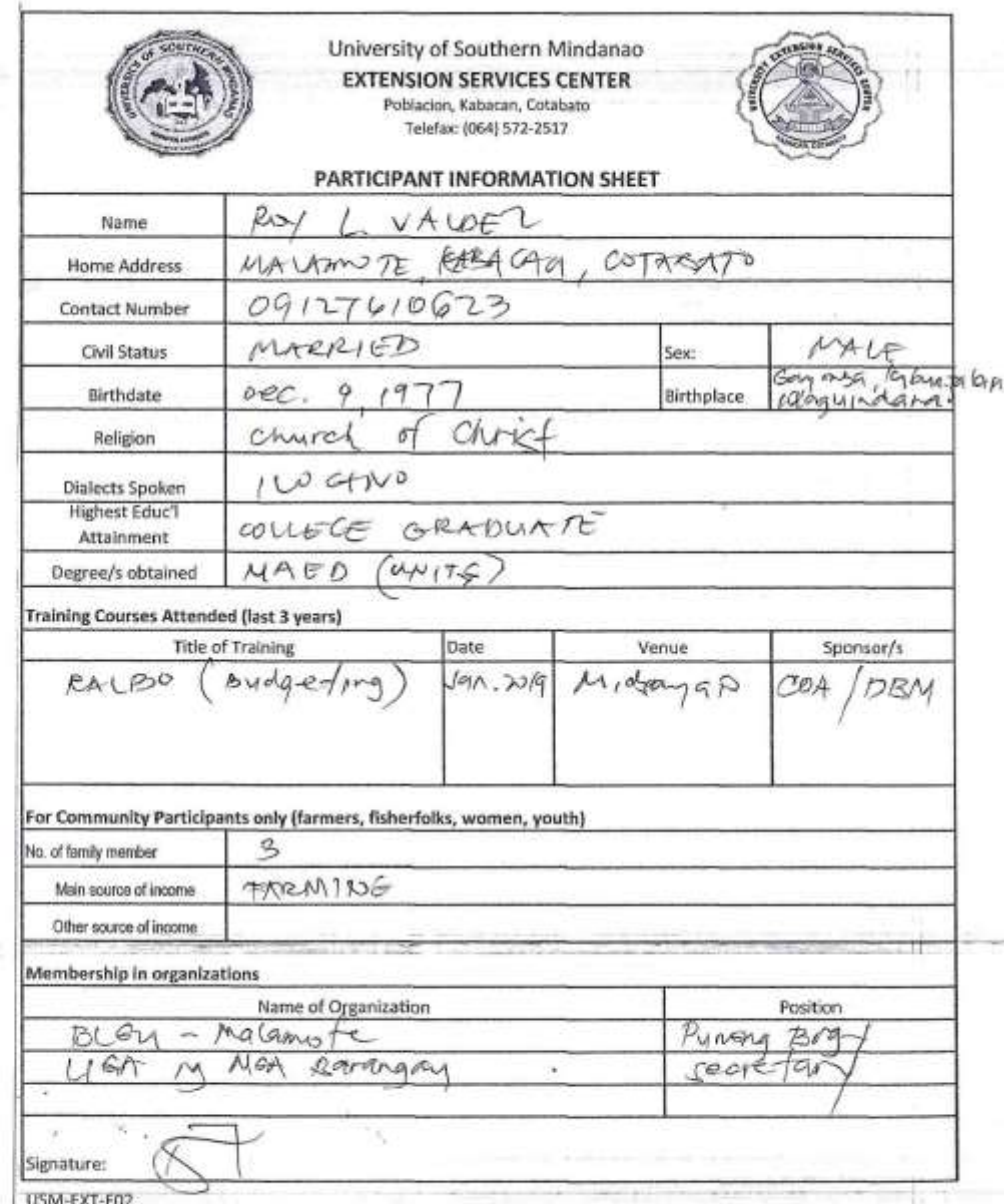 University of Southern Mindanao
EXTENSION SERVICES CENTER
Poblacion, Kabacan, Cotabato
Telefax: (064) 572-2517
UNIVERSITY OF SOUTHERN MINDANAO
UNIVERSITY EXTENSION SERVICES CENTER
KABACAN, COTABATO
PARTICIPANT INFORMATION SHEET
Name ROY L. VALDEZ
Home Address MALAMOTE, KABACAN, COTABATO
Contact Number 09127610623
Civil Status MARRIED Sex: MALE
Birthdate DEC. 9, 1977 Birthplace Maguindanao
Religion Church of Christ
Dialects Spoken ILOCANO
Highest Educ'l
Attainment COLLEGE GRADUATE
Degree/s obtained MAED (UNITS)
Training Courses Attended (last 3 years)
Title of Training Date Venue Sponsor/s
(Budgeting) Jan. 2019 Midsayap COA / DBM
For Community Participants only (farmers, fisherfolks, women, youth)
No. of family member 3
Main source of income FARMING
Other source of income
Membership in organizations
Name of Organization Position
BLGU - Malamote Punong Brgy
LIGA ng MGA Barangay secretary
Signature:
USM-EXT-F02